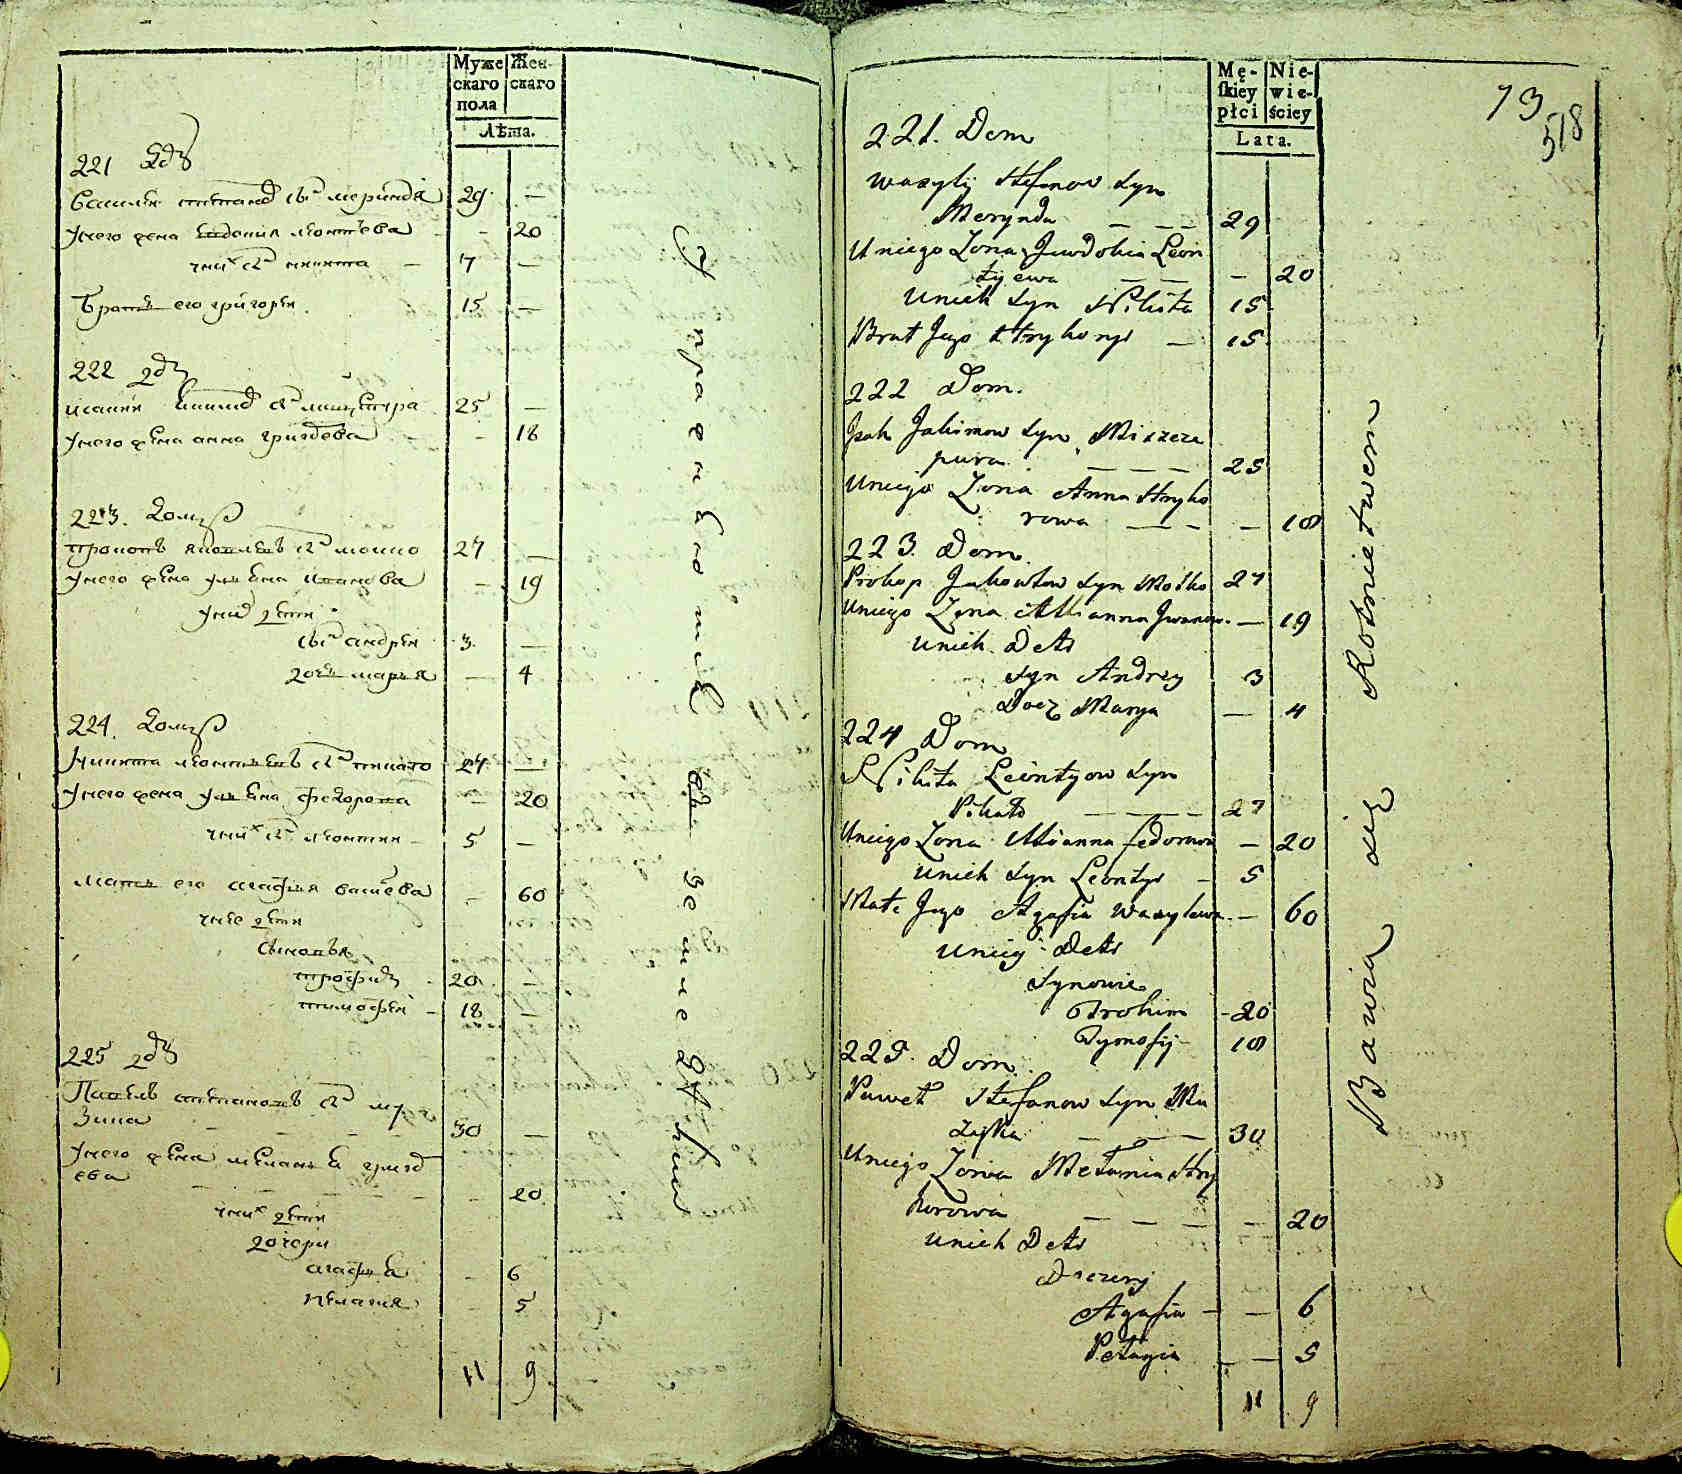 Муже
скаго
пола
Жен-
скаго
Лѣта.
221
Василей Степанов сынъ Меринда 29 —
У него жена Евдокия Леонтьева — 20
у них сынъ Никита — 7 —
Братъ его Григорей 15 —
222
25 —
У него жена Анна Григорьева — 18
223. Домъ
Прокопъ Яковлевъ сынъ Мошко 27 —
У него жена Ульяна Иванова — 19
у них дети
сынъ Андрей 3 —
дочь Марья — 4
224. Домъ
Никита Леонтьевъ сынъ Пикато 27 —
У него жена Ульяна Федорова — 20
у них сынъ Леонтий — 5 —
Мать его Агафья Васильева — 60
у нее дети
Сыновья
Трофим 20 —
Тимофей — 18 —
225
Павелъ Степановъ сынъ Му
зика 30 —
У него жена Меланья Григор
ева — 20
у них дети
дочери
Агафья — 6
Пелагия — 5
11 9
Mę-
skiey
płci
Nie-
wie-
ściey
Lata.
73
518
221. Dom
Wasylij Stefanow Syn
Merynda — — 29
U niego Zona Jewdokia Leon
tyiewa — — — 20
U nich Syn Nikita 15
Brat Jego Hryhoryi — 15
222 Dom.
Isak Jakimow Syn Miszcze
pura — — — 25
U niego Zona Anna Hryho
rowa — — — 18
223. Dom
Prokop Jakowlew Syn Moszko 27
U niego Zona Ullianna Jwanow. — 19
U nich Deti
Syn Andrey 3
Docz Marya — 4
224 Dom
Nikita Leontyow Syn
Pikato — — — 27
U niego Zona Ullianna Fedorowa — 20
U nich Syn Leontyi — 5
Mati Jego Agafia Wasylewa — 60
U niey Deti
Synowie
Trohim — 20
Tymofij — 18
225. Dom
Paweł Stefanow Syn Mu
zyka — — 30
U niego Zona Mełania Hry
horowa — — — — 20
U nich Deti
Doczery
Agafia — — 6
Pełagia — — 5
11 9
Bawią się Rolnictwem